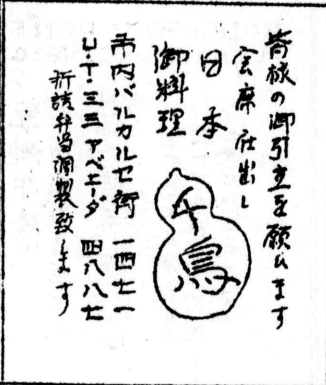 皆様の御引立を願ひます
宴席仕出し
日本
御料理
千鳥
市内バルカルセ街 一四七一
U.T.三三アベニーダ 四八八七
折詰弁当調製致します